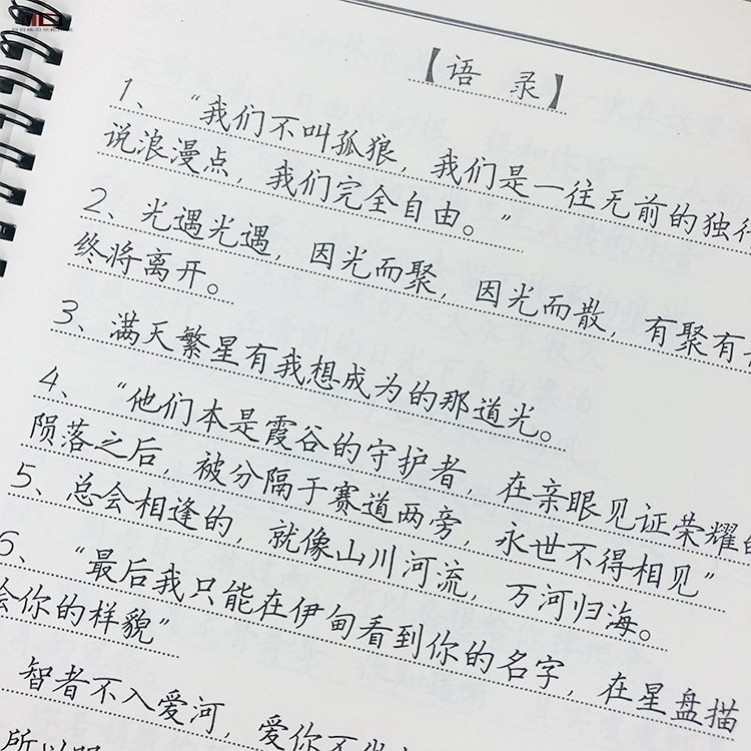 【语 录】
1、“我们不叫孤狼，我们是一往无前的独行
说浪漫点，我们完全自由。”
2、光遇光遇，因光而聚，因光而散，有聚有
终将离开。
3、满天繁星有我想成为的那道光。
4、“他们本是霞谷的守护者，在亲眼见证荣耀的
陨落之后，被分隔于赛道两旁，永世不得相见”
5、总会相逢的，就像山川河流，万河归海。
6、“最后我只能在伊甸看到你的名字，在星盘描
会你的样貌”
智者不入爱河，爱你不
所以